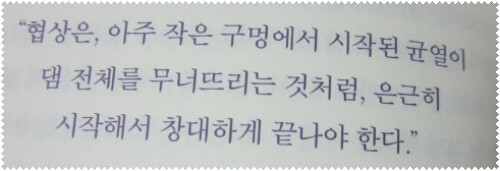 “협상은, 아주 작은 구멍에서 시작된 균열이
댐 전체를 무너뜨리는 것처럼, 은근히
시작해서 창대하게 끝나야 한다.”